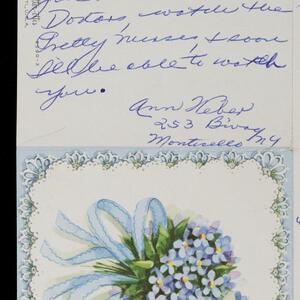 Doctors, watch the
Pretty nurses, & soon
I'll be able to watch
you.
Ann Weber
253 Bway
Monticello NY